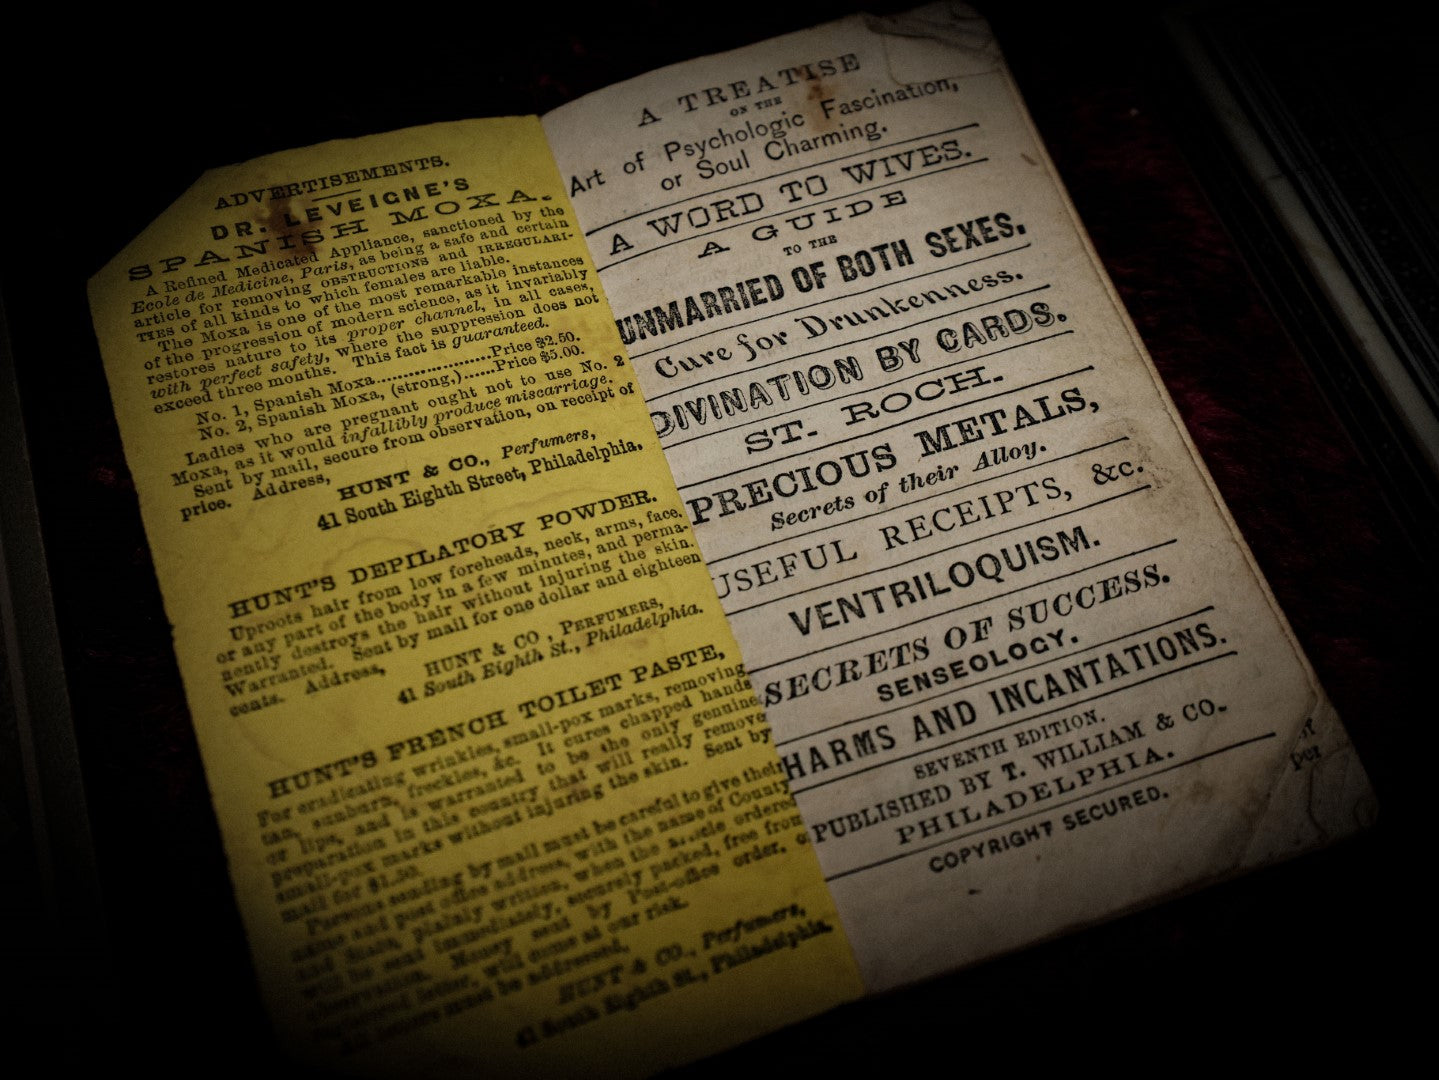 ADVERTISEMENTS.
DR. LEVEIGNE'S
SPANISH MOXA.
A Refined Medicated Appliance, sanctioned by the
Ecole de Medicine, Paris, as being a safe and certain
article for removing OBSTRUCTIONS and IRREGULARI-
TIES of all kinds to which females are liable.
The Moxa is one of the most remarkable instances
of the progression of modern science, as it invariably
restores nature to its proper channel, in all cases,
with perfect safety, where the suppression does not
exceed three months. This fact is guaranteed.
No. 1, Spanish Moxa....................Price $2.50.
No. 2, Spanish Moxa, (strong,)......Price $5.00.
Ladies who are pregnant ought not to use No. 2
Moxa, as it would infallibly produce miscarriage.
Sent by mail, secure from observation, on receipt of
price. Address,
HUNT & CO., Perfumers,
41 South Eighth Street, Philadelphia.
HUNT'S DEPILATORY POWDER.
Uproots hair from low foreheads, neck, arms, face.
or any part of the body in a few minutes, and perma-
nently destroys the hair without injuring the skin.
Warranted. Sent by mail for one dollar and eighteen
cents. Address,
HUNT & CO , PERFUMERS,
41 South Eighth St., Philadelphia.
HUNT'S FRENCH TOILET PASTE,
For eradicating wrinkles, small-pox marks, removing
tan, sunburn, freckles, &c. It cures chapped hands
or lips, and is warranted to be the only genuine
preparation in this country that will really remove
small-pox marks without injuring the skin. Sent by
mail for $1.50.
Persons sending by mail must be careful to give their
name and post office address, with the name of County
and State, plainly written, when the article ordered
will be sent immediately, securely packed, free from
observation. Money sent by Post-office order, or
registered letter, will come at our risk.
All letters must be addressed,
HUNT & CO., Perfumers,
41 South Eighth St., Philadelphia.
A TREATISE
ON THE
Art of Psychologic Fascination,
or Soul Charming.
A WORD TO WIVES.
A GUIDE
TO THE
UNMARRIED OF BOTH SEXES.
Cure for Drunkenness.
DIVINATION BY CARDS.
ST. ROCH.
PRECIOUS METALS,
Secrets of their Alloy.
USEFUL RECEIPTS, &c.
VENTRILOQUISM.
SECRETS OF SUCCESS.
SENSEOLOGY.
HARMS AND INCANTATIONS.
SEVENTH EDITION.
PUBLISHED BY T. WILLIAM & CO.
PHILADELPHIA.
COPYRIGHT SECURED.
per